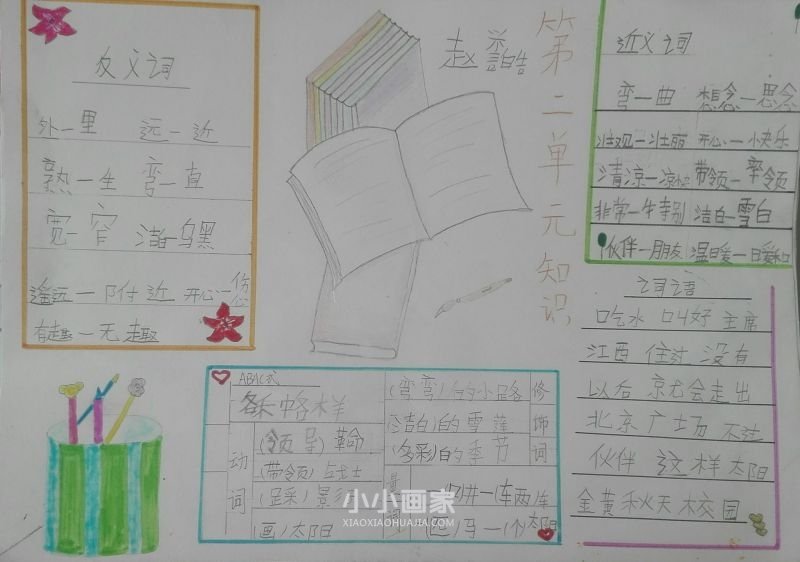 反义词
外一里 远一近
熟一生 弯一直
宽一窄 洁白一乌黑
遥远一附近 开心一
有趣一无趣
赵
第二单元知识
近义词
弯一曲 想念一思念
壮观一壮丽 开心一快乐
清凉一凉快 带领一率领
非常一特别 洁白一雪白
伙伴一朋友 温暖一暖和
词语
吃水 叫好 主席
江西 住过 没有
以后 就会 走出
北京 广场 不过
伙伴 这样 太阳
金黄 秋天 校园
ABAC式
各种各样
动词
(领导)革命
(带领)战士
(踩)
(画)太阳
(弯弯)的小路
(洁白)的雪莲
(多彩)的季节
修饰词
一(车两)车
一(个)太阳
小小画家
XIAOXIAOHUAJIA.COM